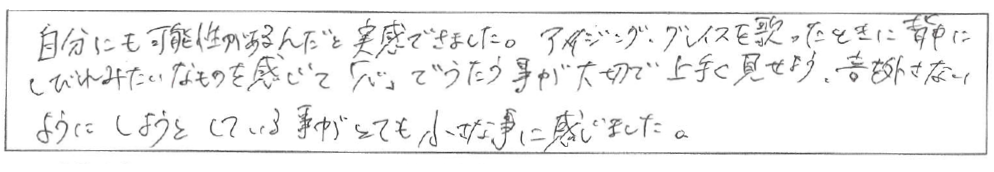 自分にも可能性があるんだと実感できました。アメイジング・グレイスを歌ったときに背中に
しびれみたいなものを感じて「心」でうたう事が大切で上手く見せよう、音を外さない
ようにしようとしている事がとても小さな事に感じました。